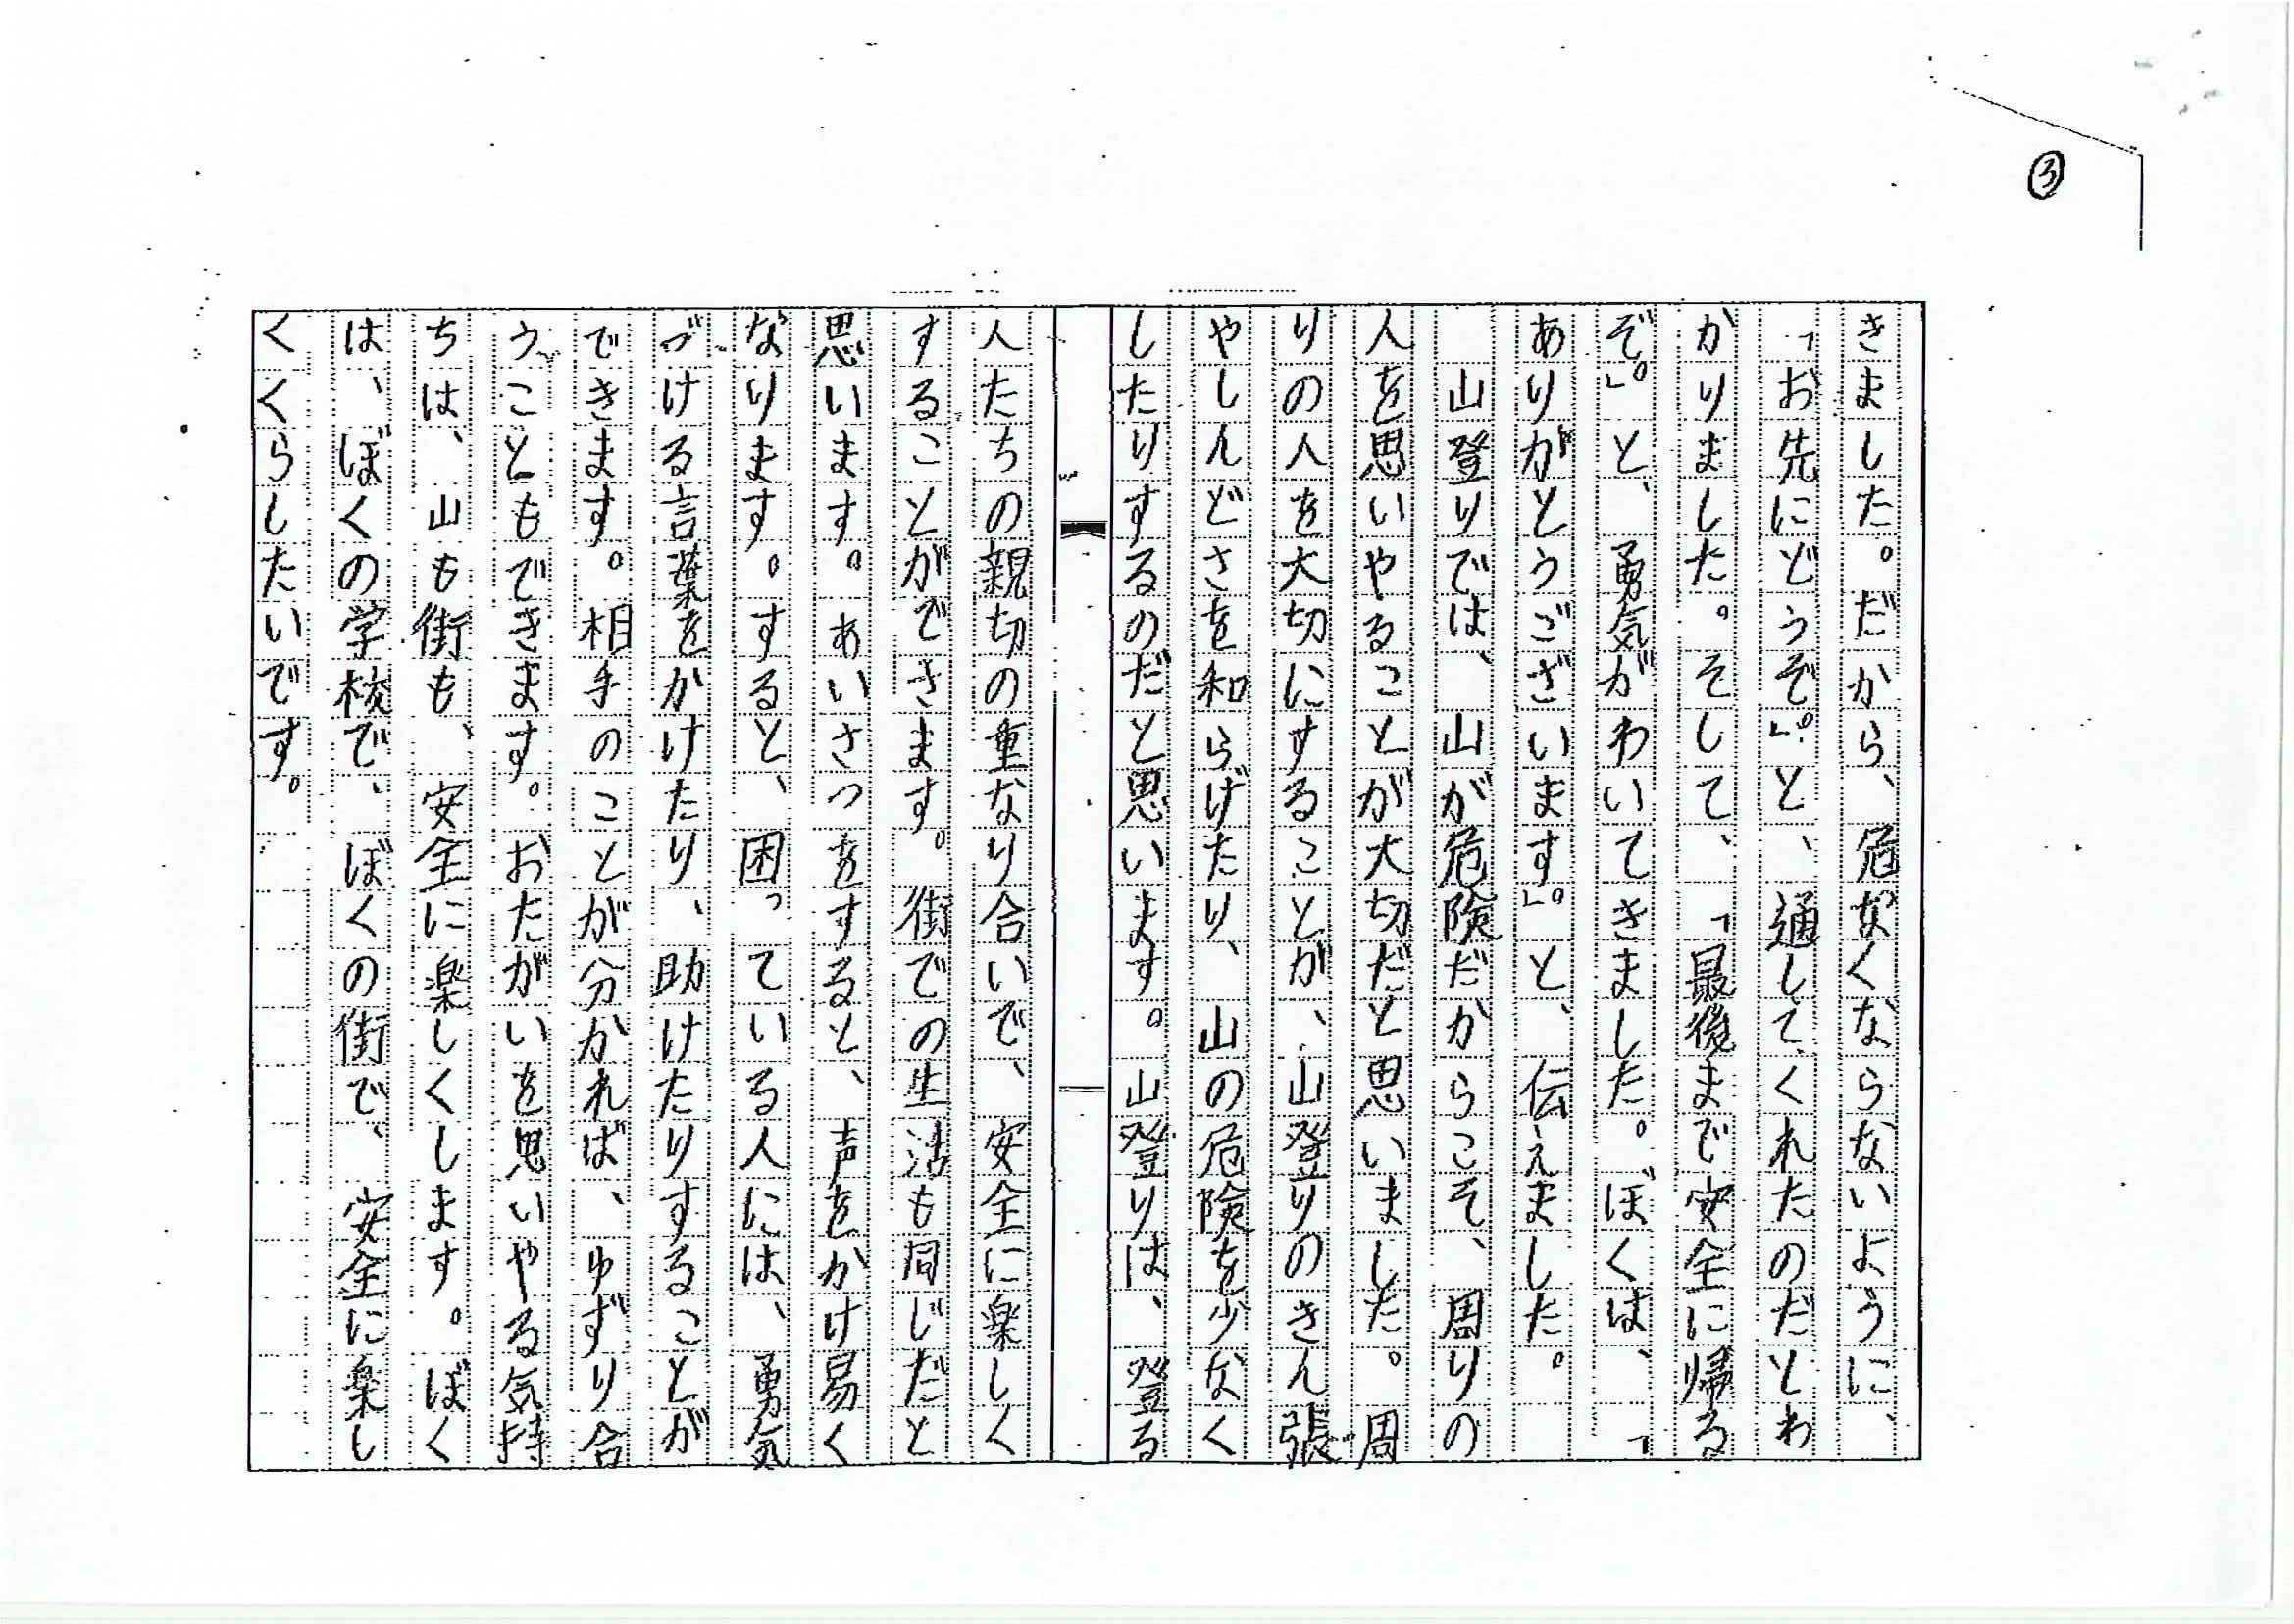 ③
きました。だから、危なくならないように、
「お先にどうぞ。」と、通してくれたのだとわ
かりました。そして、「最後まで安全に帰る
ぞ。」と、勇気がわいてきました。ぼくは、「
ありがとうございます。」と、伝えました。
山登りでは、山が危険だからこそ、周りの
人を思いやることが大切だと思いました。周
りの人を大切にすることが、山登りのきん張
やしんどさを和らげたり、山の危険を少なく
したりするのだと思います。山登りは、登る
人たちの親切の重なり合いで、安全に楽しく
することができます。街での生活も同じだと
思います。あいさつをすると、声をかけ易く
なります。すると、困っている人には、勇気
づける言葉をかけたり、助けたりすることが
できます。相手のことが分かれば、ゆずり合
うこともできます。おたがいを思いやる気持
ちは、山も街も、安全に楽しくします。ぼく
は、ぼくの学校で、ぼくの街で、安全に楽し
くくらしたいです。